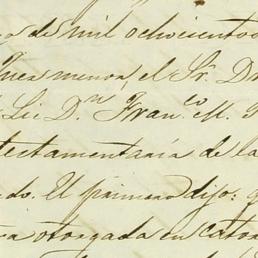 de mil ochocientos
menor, el Sr. Dn
Lic Dn. Franco. M.
testamentaria de la
do. El primero dijo: q
otorgada en